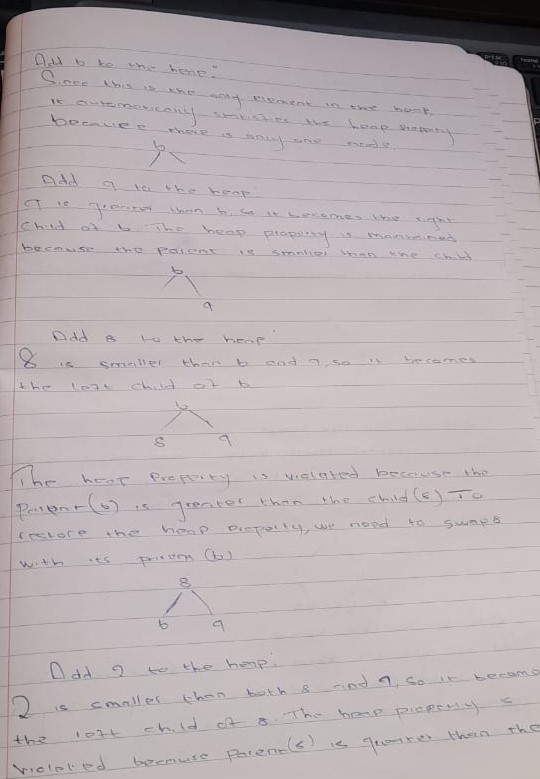 Add 6 to the heap:
Since this is the only element in the heap,
it automatically satisfies the heap property
because there is only one node.
6
Add 9 to the heap:
9 is greater than 6, so it becomes the right
child of 6. The heap property is maintained
because the parent is smaller than the child
6
9
Add 8 to the heap:
8 is smaller than 6 and 9, so it becomes
the left child of 6
6
8 9
The heap property is violated because the
parent (6) is greater than the child (8) To
restore the heap property, we need to swap 8
with its parent (6)
8
6 9
Add 2 to the heap:
2 is smaller than both 8 and 9, so it become
the left child of 8. The heap property is
violated because parent (8) is greater than the